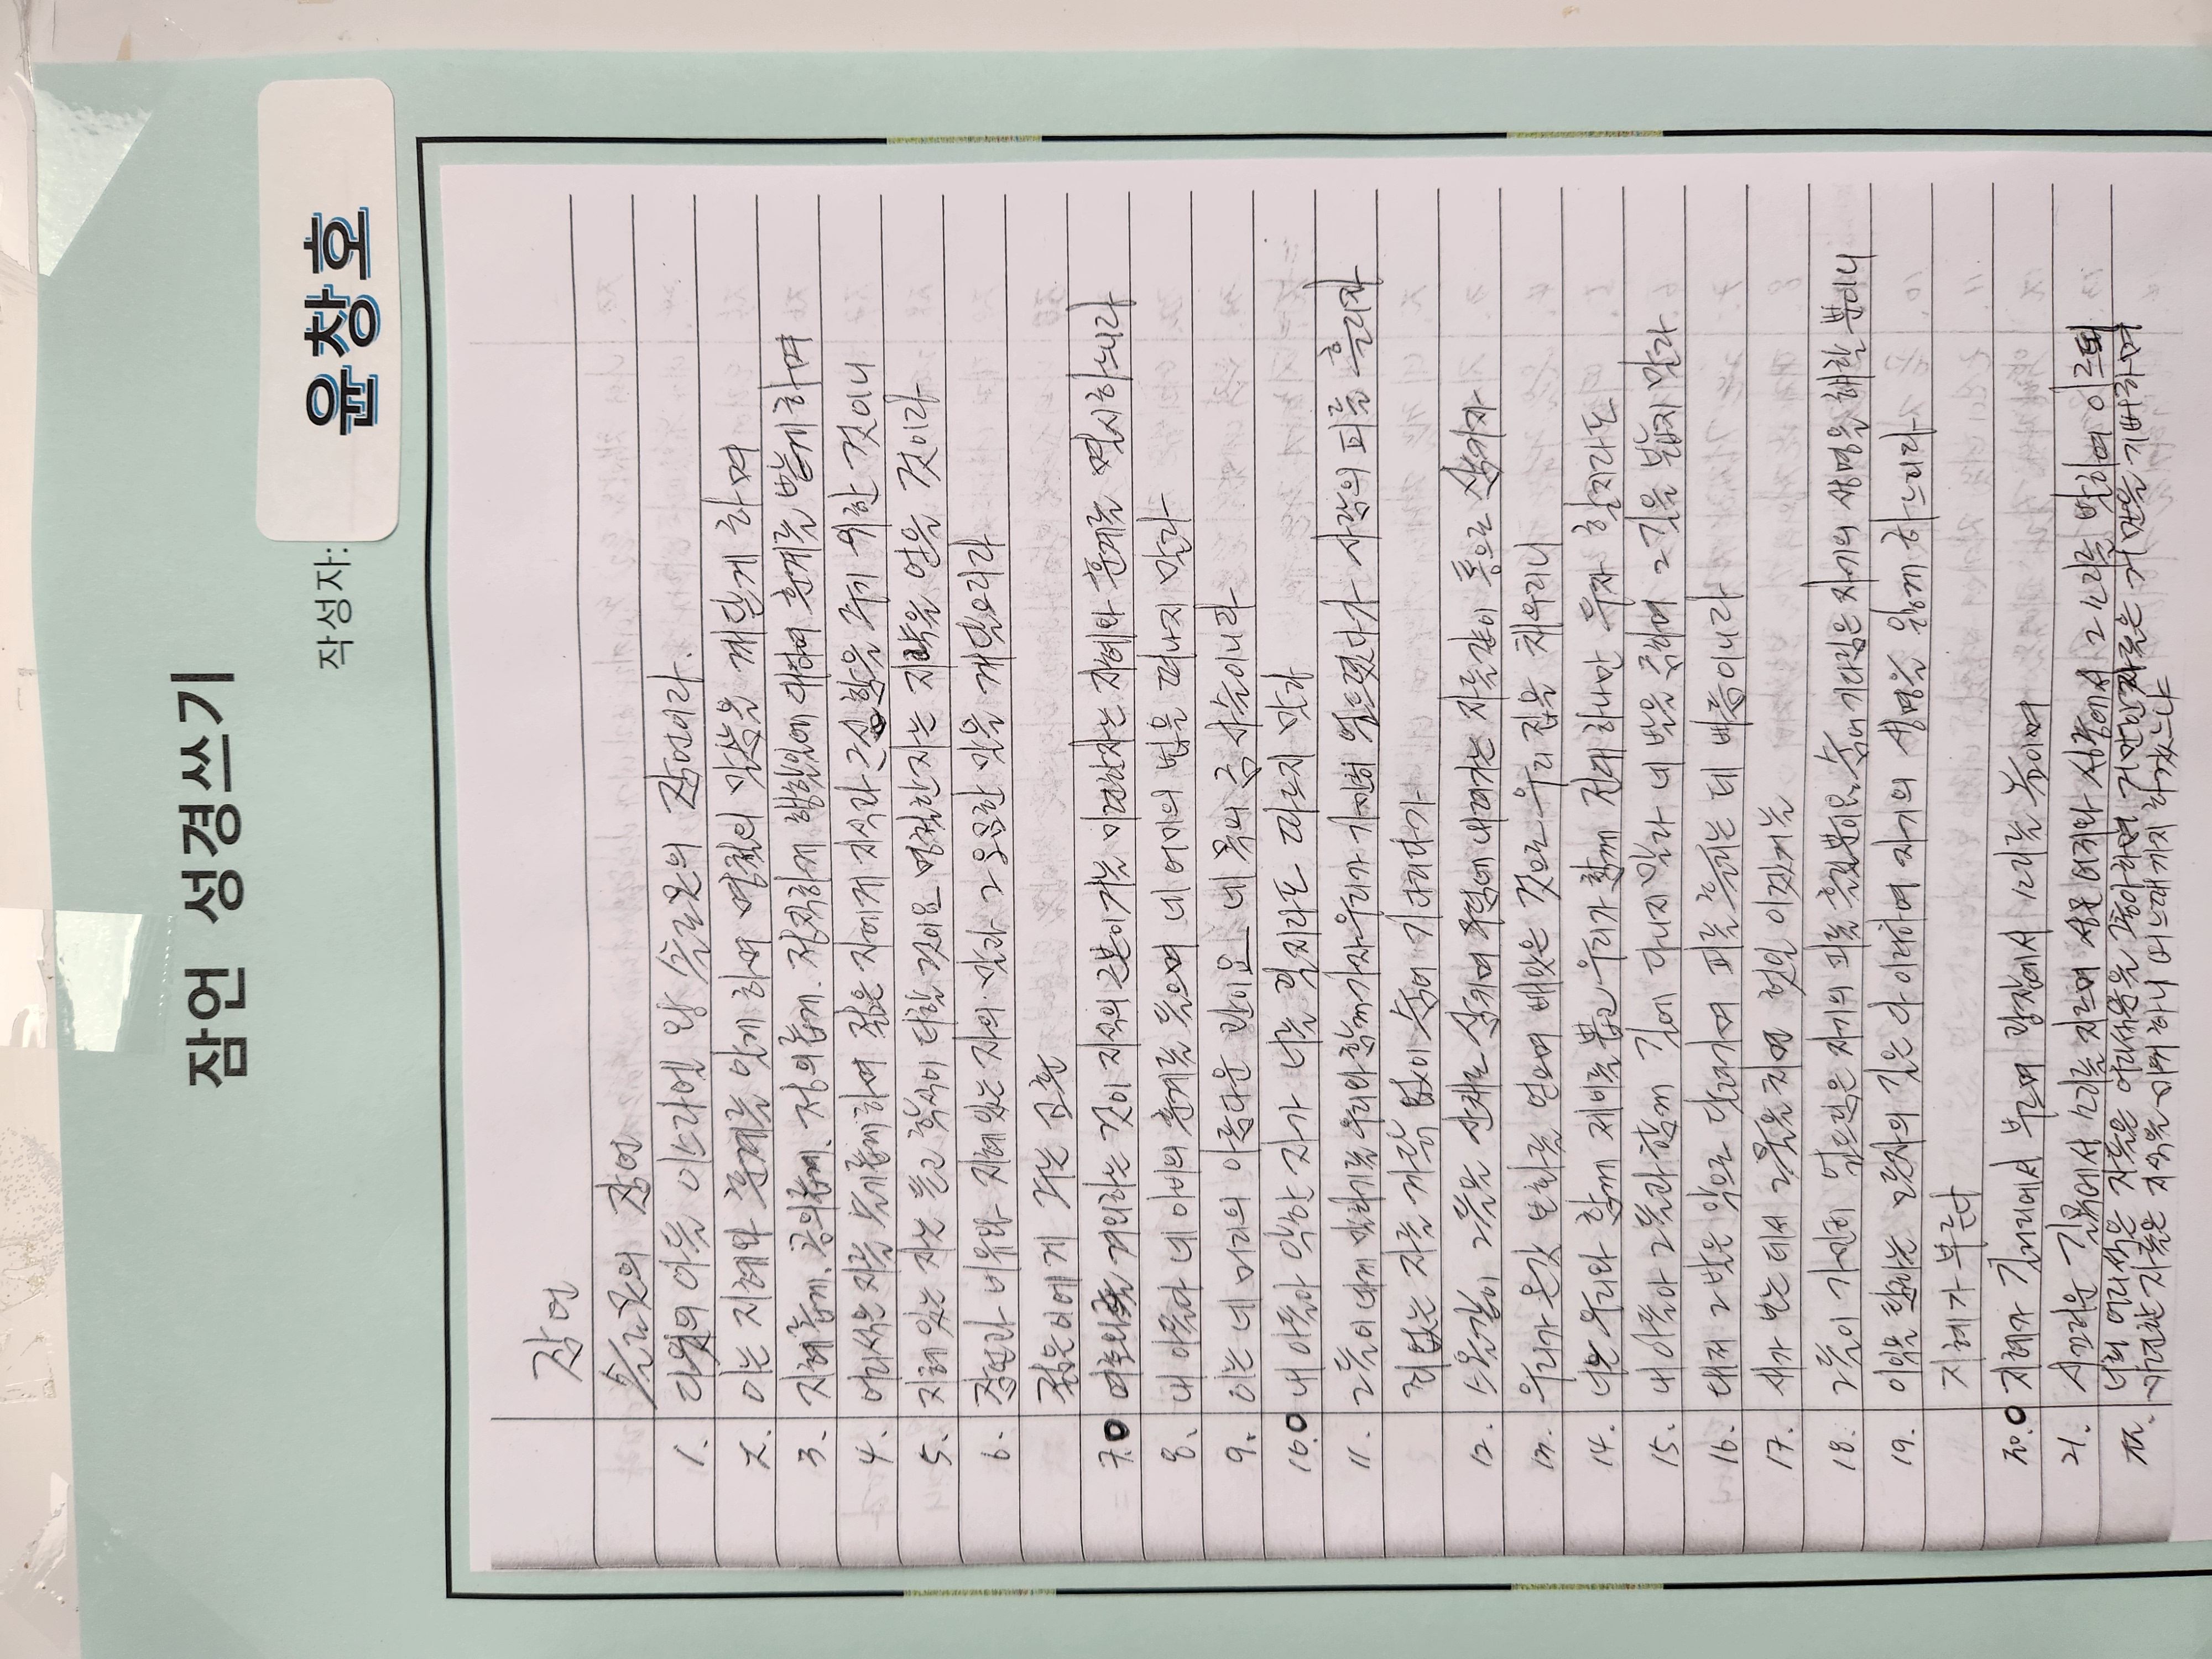 잠언 성경쓰기
작성자: 윤창호
잠언
솔로몬의 잠언
1. 다윗의 아들 이스라엘 왕 솔로몬의 잠언이라.
2. 이는 지혜와 훈계를 알게 하며 명철의 말씀을 깨닫게 하며
3. 지혜롭게, 공의롭게, 정의롭게, 정직하게 행할일에 대하여 훈계를 받게 하며
4. 어리석은 자를 슬기롭게 하며 젊은 자에게 지식과 근신함을 주기 위한 것이니
5. 지혜 있는 자는 듣고 학식이 더할 것이요 명철한 자는 지략을 얻을 것이라
6. 잠언과 비유와 지혜있는 자의 말과 그 오묘한 말을 깨달으리라
젊은이에게 주는 교훈
7.O 여호와를 경외하는 것이 지식의 근본이거늘 미련한자는 지혜와 훈계를 멸시하느니라
8. 내 아들아 네 아비의 훈계를 들으며 네 어미의 법을 떠나지 말라
9. 이는 네 머리의 아름다운 관이요 네 목의 금 사슬이니라
10.O 내 아들아 악한 자가 너를 꾈지라도 따르지 말라
11. 그들이 네게 말하기를 우리와 함께 가자 우리가 가만히 엎드렸다가 사람의 피를 흘리자
죄 없는 자를 까닭 없이 숨어 기다리다가
12. 스올같이 그들을 산채로 삼키며 무덤에 내려가는 자들같이 통으로 삼키자
13. 우리가 온갖 보화를 얻으며 빼앗은 것으로 우리 집을 채우리니
14. 너는 우리와 함께 제비를 뽑고 우리가 함께 전대 하나만 두자 할지라도
15. 내 아들아 그들과 함께 길에 다니지 말라 네 발을 금하여 그 길을 밟지 말라
16. 대저 그 발은 악으로 달려가며 피를 흘리는 데 빠름이니라
17. 새가 보는 데서 그물을 치면 헛일 이겠거늘
18. 그들이 가만히 엎드림은 자기의 피를 흘릴뿐이요 숨어 기다림은 자기의 생명을 해할 뿐이니
19. 이익을 탐하는 모든 자의 길은 다 이러하여 자기의 생명을 잃게 하느니라
지혜가 부른다
20.O 지혜가 길거리에서 부르며 광장에서 소리를 높이며
21. 시끄러운 길목에서 소리를 지르며 성문 어귀와 성중에서 그 소리를 발하여 이르되
22. 너희 어리석은 자들은 어리석음을 좋아하며 거만한 자들은 거만을 기뻐하며
미련한 자들은 지식을 미워하니 어느때까지 하겠느냐